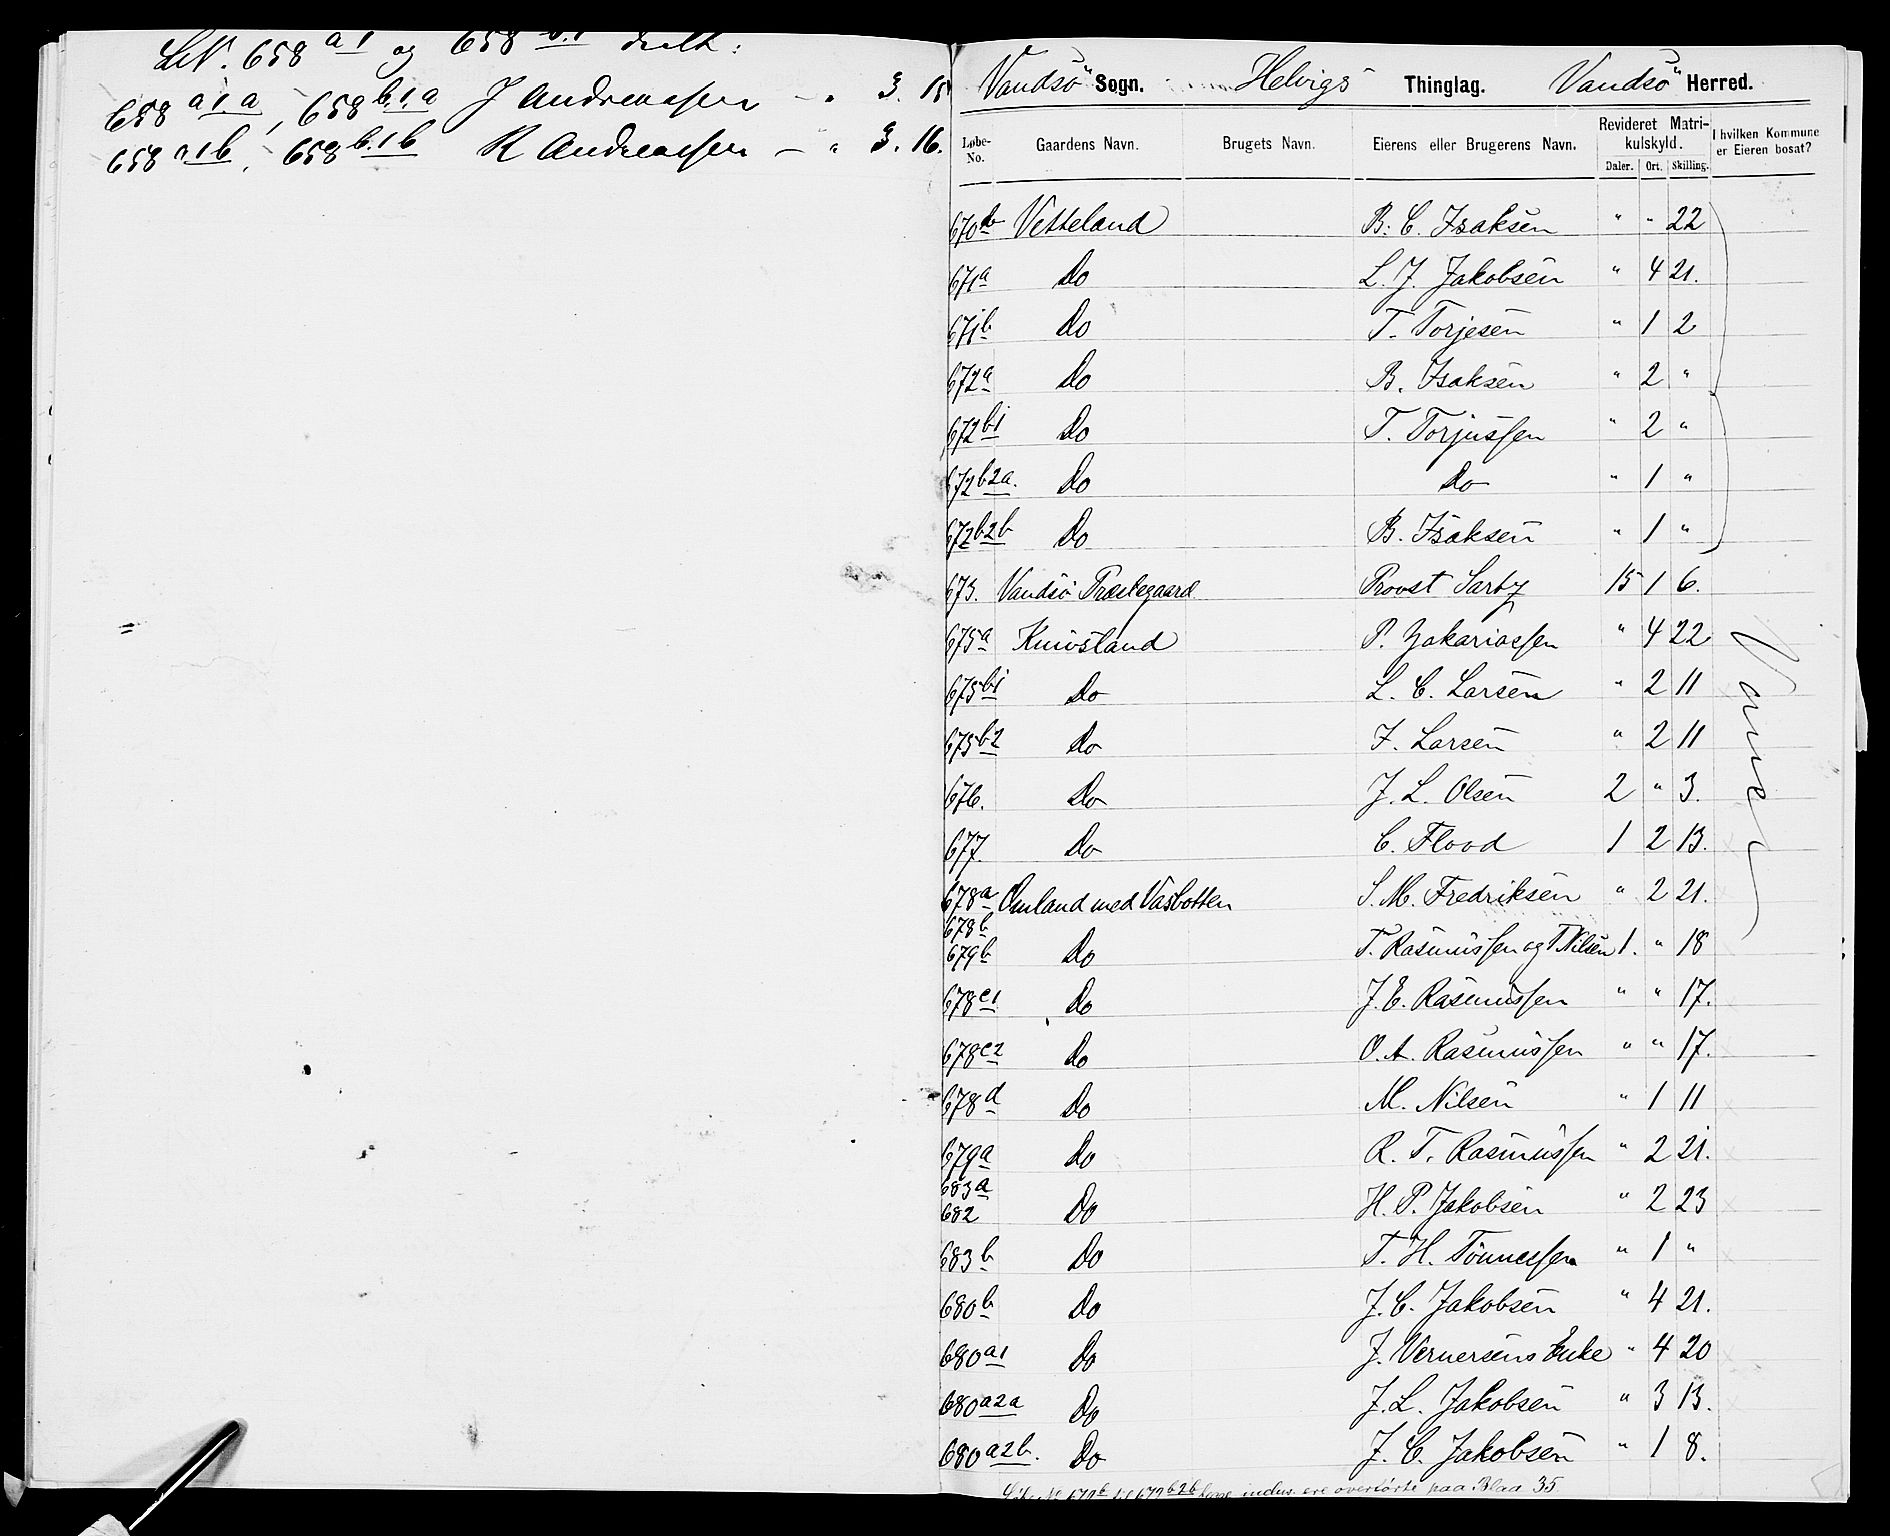 LN. 658 a1 og 658 b.1 delt:
658 a1a, 658 b.1.a J Andreassen - " 3. 15
658 a1b, 658 b.1b R Andreassen - " 3. 16.
Vandsö Sogn. Helvigs Thinglag. Vandsö Herred.
Løbe-No. Gaardens Navn. Brugets Navn. Eierens eller Brugerens Navn. Revideret Matrikulskyld. I hvilken Kommune er Eieren bosat?
Daler. Ort. Skilling.
670b Vetteland B. C. Isaksen " " 22
671a Do L. J. Jakobsen " 4 21.
671b Do T. Torjesen " 1 2
672a Do B. Isaksen " 2 "
672b1 Do T. Torjussen " 2 "
672b2a. Do Do " 1 "
672b2b Do B. Isaksen " 1 "
673. Vandsö Præstegaard Provst 15 1 6.
675a Knivsland P. Zakariassen " 4 22
675b1 Do L. C. Larsen " 2 11
675b2 Do J. Larsen " 2 11
676. Do J. L. Olsen 2 " 3.
677. Do C. Flood 1 2 13.
Vanse
678a Omland med Vasbotten S. M. Fredriksen " 2 21.
678b
679b Do T. Rasmussen og T Nilsen 1. " 18
678c1 Do J. E. Rasmussen " " 17.
678c2 Do O. A. Rasmussen " " 17.
678d Do M. Nilsen " 1 11
679a Do R. T. Rasmussen " 2 21.
683a
682 Do H. P. Jakobsen " 2 23
683b Do T. H. Tönnessen " 1 "
680b Do J. C. Jakobsen " 4 21.
680a1 Do J. Vernersens Enke " 4 20
680a2a Do J. L. Jakobsen " 3 13.
680a2b. Do J. C. Jakobsen " 1 8.
til 672b2b indus. ere overførte paa Blaa 35